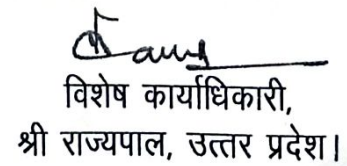 विशेष कार्याधिकारी,
श्री राज्यपाल, उत्तर प्रदेश।